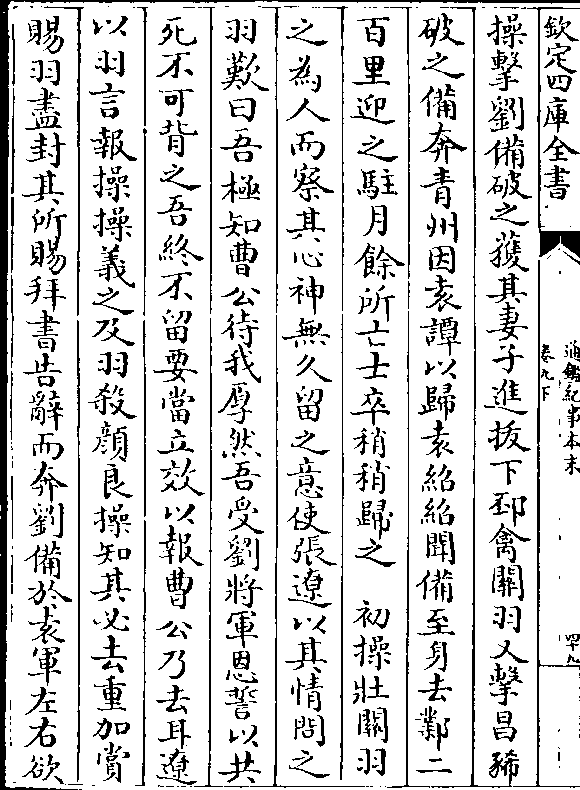 欽定四庫全書
通鑑紀事本末
卷九下
四九
操擊劉備破之獲其妻子進拔下邳禽關羽又擊昌豨
破之備奔青州因袁譚以歸袁紹紹聞備至身去鄴二
百里迎之駐月餘所亡士卒稍稍歸之 初操壯關羽
之為人而察其心神無久留之意使張遼以其情問之
羽歎曰吾極知曹公待我厚然吾受劉將軍恩誓以共
死不可背之吾終不留要當立效以報曹公乃去耳遼
以羽言報操操義之及羽殺顔良操知其必去重加賞
賜羽盡封其所賜拜書告辭而奔劉備於袁軍左右欲